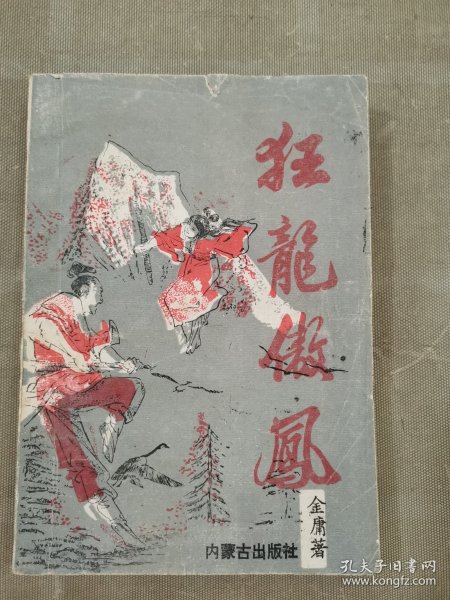 狂龍傲鳳
金庸著
内蒙古出版社
孔夫子旧书网
www.kongfz.com